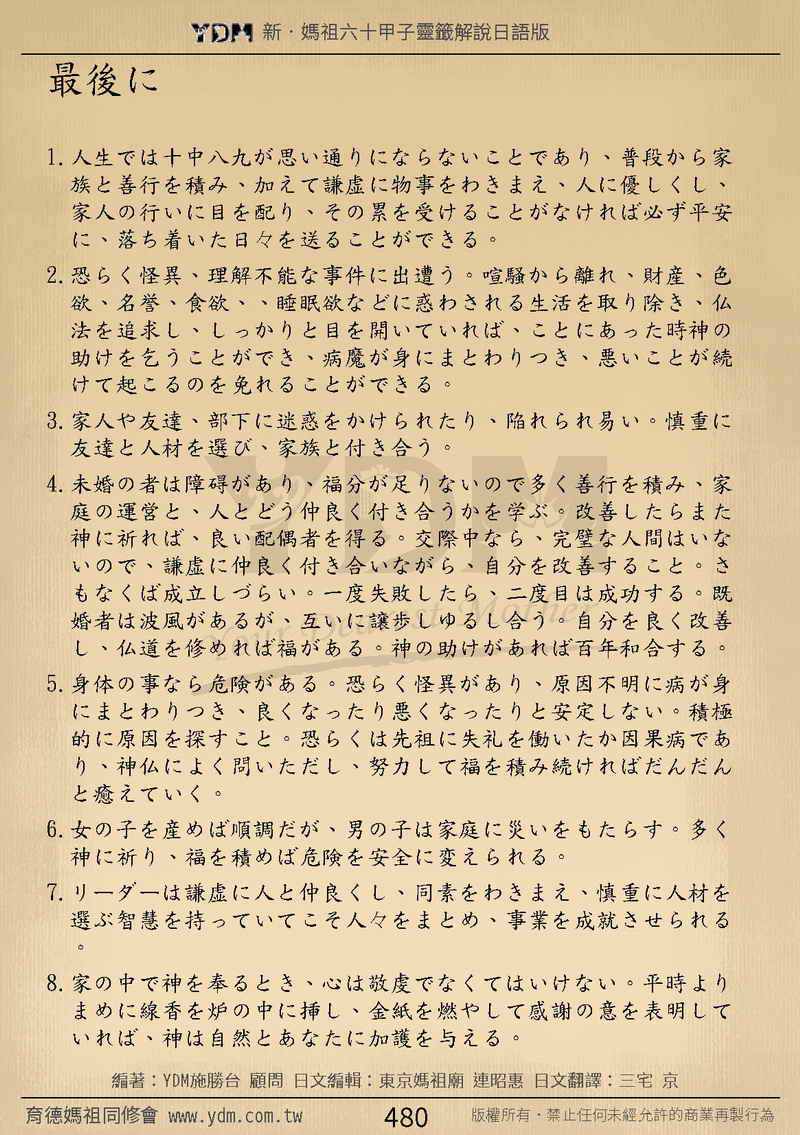 YDM 新・媽祖六十甲子靈籤解說日語版
最後に
1. 人生では十中八九が思い通りにならないことであり、普段から家
族と善行を積み、加えて謙虚に物事をわきまえ、人に優しくし、
家人の行いに目を配り、その累を受けることがなければ必ず平安
に、落ち着いた日々を送ることができる。
2. 恐らく怪異、理解不能な事件に出遭う。喧騒から離れ、財産、色
欲、名誉、食欲、、睡眠欲などに惑わされる生活を取り除き、仏
法を追求し、しっかりと目を開いていれば、ことにあった時神の
助けを乞うことができ、病魔が身にまとわりつき、悪いことが続
けて起こるのを免れることができる。
3. 家人や友達、部下に迷惑をかけられたり、陥れられ易い。慎重に
友達と人材を選び、家族と付き合う。
4. 未婚の者は障碍があり、福分が足りないので多く善行を積み、家
庭の運営と、人とどう仲良く付き合うかを学ぶ。改善したらまた
神に祈れば、良い配偶者を得る。交際中なら、完璧な人間はいな
いので、謙虚に仲良く付き合いながら、自分を改善すること。さ
もなくば成立しづらい。一度失敗したら、二度目は成功する。既
婚者は波風があるが、互いに譲歩しゆるし合う。自分を良く改善
し、仏道を修めれば福がある。神の助けがあれば百年和合する。
5. 身体の事なら危険がある。恐らく怪異があり、原因不明に病が身
にまとわりつき、良くなったり悪くなったりと安定しない。積極
的に原因を探すこと。恐らくは先祖に失礼を働いたか因果病であ
り、神仏によく問いただし、努力して福を積み続ければだんだん
と癒えていく。
6. 女の子を産めば順調だが、男の子は家庭に災いをもたらす。多く
神に祈り、福を積めば危険を安全に変えられる。
7. リーダーは謙虚に人と仲良くし、同素をわきまえ、慎重に人材を
選ぶ智慧を持っていてこそ人々をまとめ、事業を成就させられる
。
8. 家の中で神を奉るとき、心は敬虔でなくてはいけない。平時より
まめに線香を炉の中に挿し、金紙を燃やして感謝の意を表明して
いれば、神は自然とあなたに加護を与える。
YDM
Your Dearest Mother
編著：YDM施勝台 顧問 日文編輯：東京媽祖廟 連昭惠 日文翻譯：三宅 京
育德媽祖同修會 www.ydm.com.tw
480
版權所有・禁止任何未經允許的商業再製行為